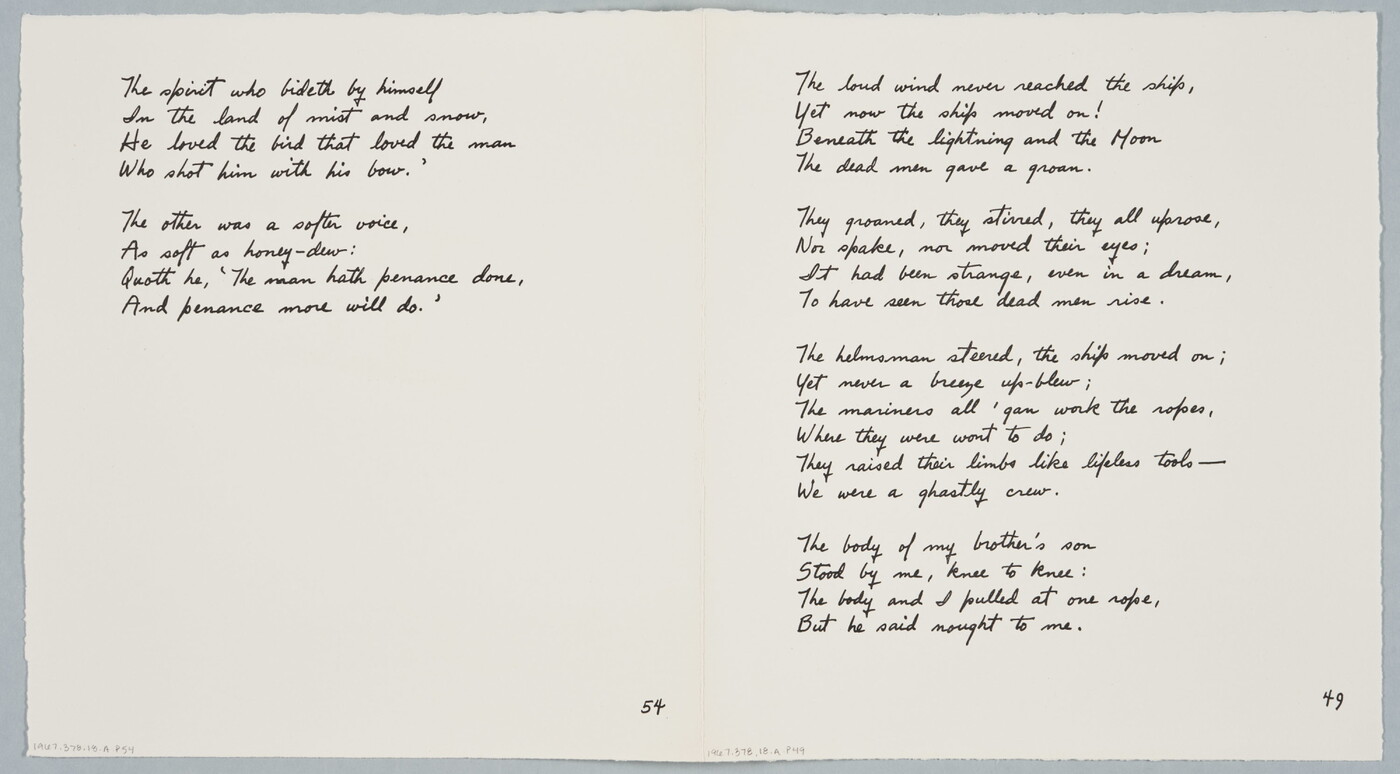 The spirit who bideth by himself
In the land of mist and snow,
He loved the bird that loved the man
Who shot him with his bow.'

The other was a softer voice,
As soft as honey-dew:
Quoth he, 'The man hath penance done,
And penance more will do.'

54
1967.378.18.A P54

The loud wind never reached the ship,
Yet now the ship moved on!
Beneath the lightning and the Moon
The dead men gave a groan.

They groaned, they stirred, they all uprose,
Nor spake, nor moved their eyes;
It had been strange, even in a dream,
To have seen those dead men rise.

The helmsman steered, the ship moved on;
Yet never a breeze up-blew;
The mariners all 'gan work the ropes,
Where they were wont to do;
They raised their limbs like lifeless tools—
We were a ghastly crew.

The body of my brother's son
Stood by me, knee to knee:
The body and I pulled at one rope,
But he said nought to me.

49
1967.378.18.A P49